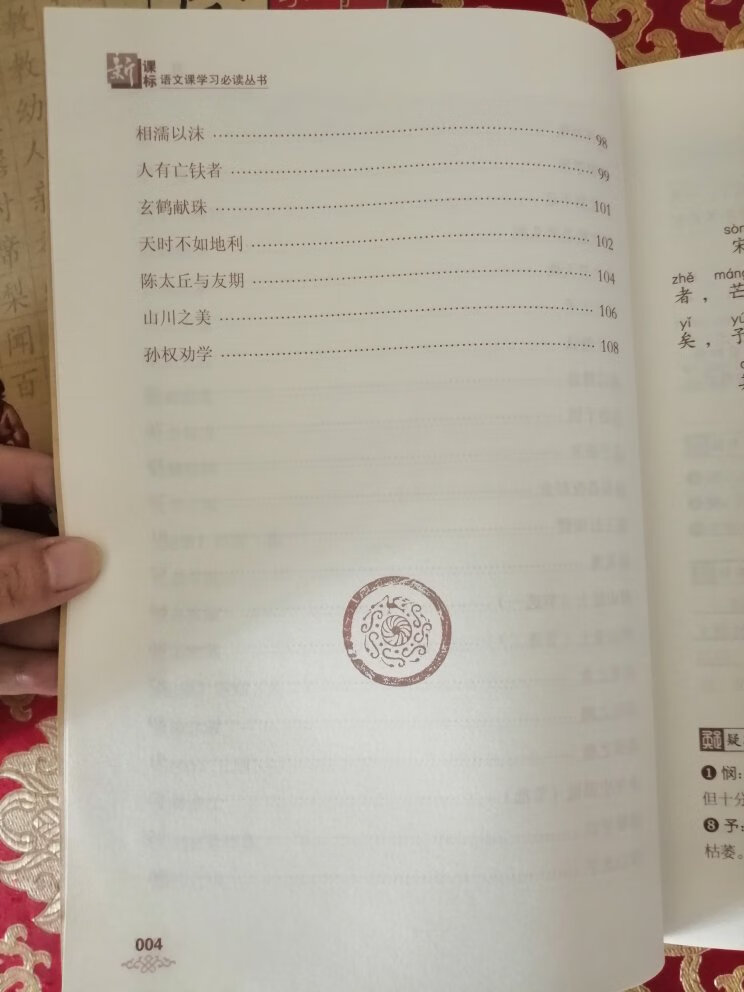 新课标 语文课学习必读丛书
相濡以沫 98
人有亡铁者 99
玄鹤献珠 101
天时不如地利 102
陈太丘与友期 104
山川之美 106
孙权劝学 108
004
sòn
宋
zhě máng
者，芒
yǐ yú
矣，予
疑
❶ 悯：
但十分
❽ 予：
枯萎。
教
教
幼
人
亲
时
席
梨
闻
百